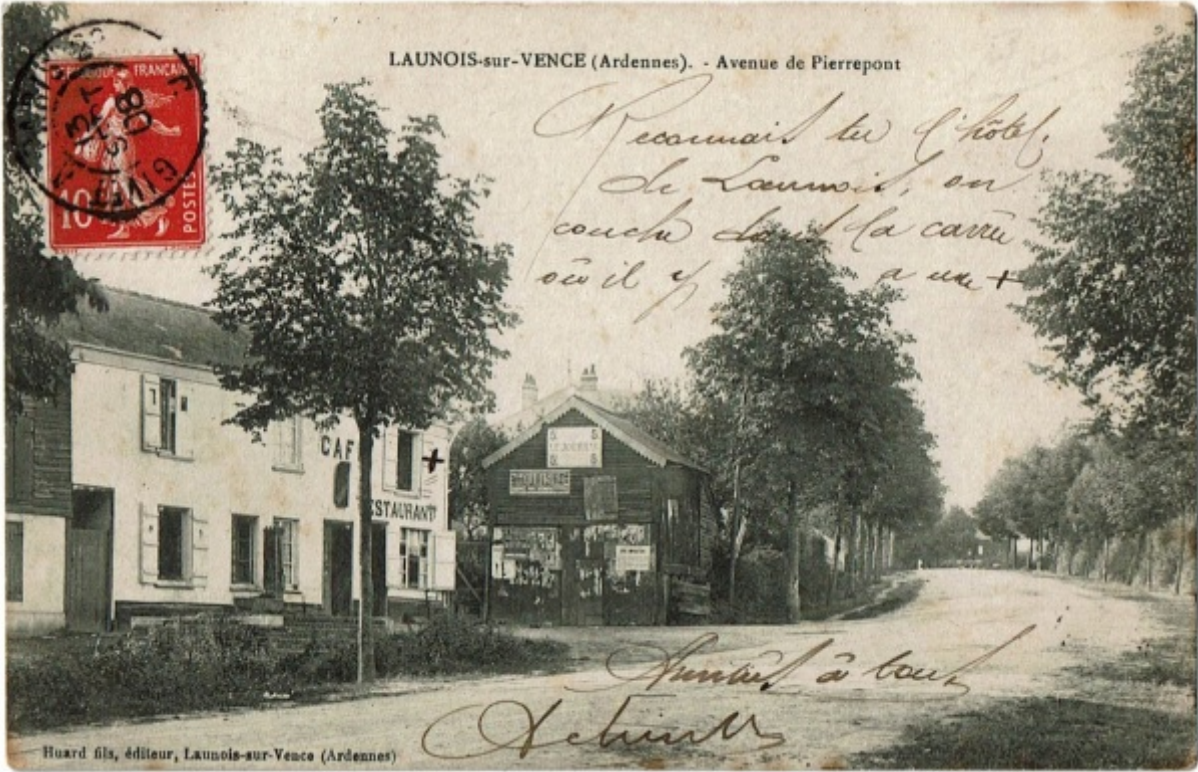 LAUNOIS-sur-VENCE (Ardennes). - Avenue de Pierrepont
RÉPUBLIQUE FRANÇAISE
10
POSTES
GIVET
08
Reconnais tu l'hôtel
de Launois, on
couche dans la carrée
où il y a une +
CAF
ESTAURANT
+
Amitiés à tous
Huard fils, éditeur, Launois-sur-Vence (Ardennes)